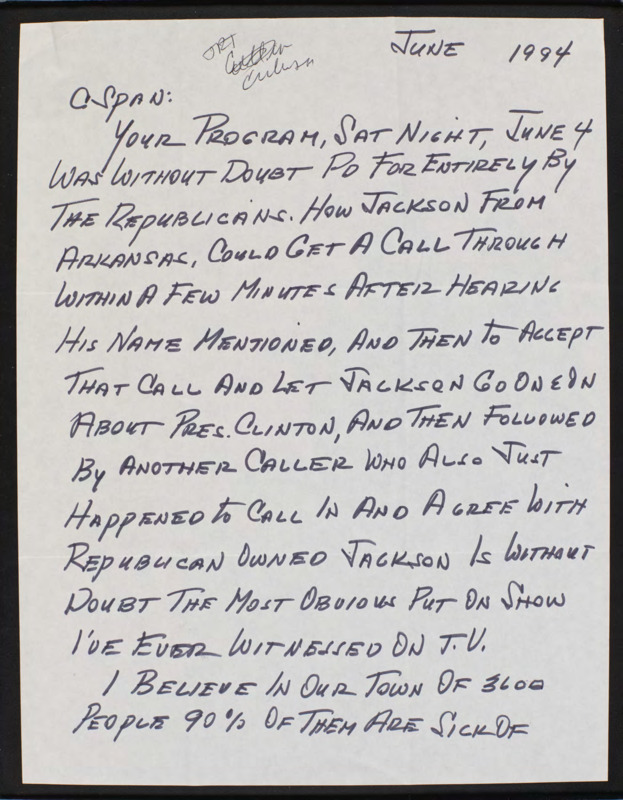 JRT
JUNE 1994
CSPAN:
YOUR PROGRAM, SAT NIGHT, JUNE 4
WAS WITHOUT DOUBT PD FOR ENTIRELY BY
THE REPUBLICANS. HOW JACKSON FROM
ARKANSAS, COULD GET A CALL THROUGH
WITHIN A FEW MINUTES AFTER HEARING
HIS NAME MENTIONED, AND THEN to ACCEPT
THAT CALL AND LET JACKSON GO ON & ON
ABOUT PRES. CLINTON, AND THEN FOLLOWED
By ANOTHER CALLER WHO ALSO JUST
HAPPENED to CALL IN AND AGREE WITH
REPUBLICAN OWNED JACKSON IS WITHOUT
DOUBT THE MOST OBVIOUS PUT ON SHOW
I'VE EVER WITNESSED ON T.V.
I BELIEVE IN OUR TOWN OF 3600
PEOPLE 90% OF THEM ARE SICK OF